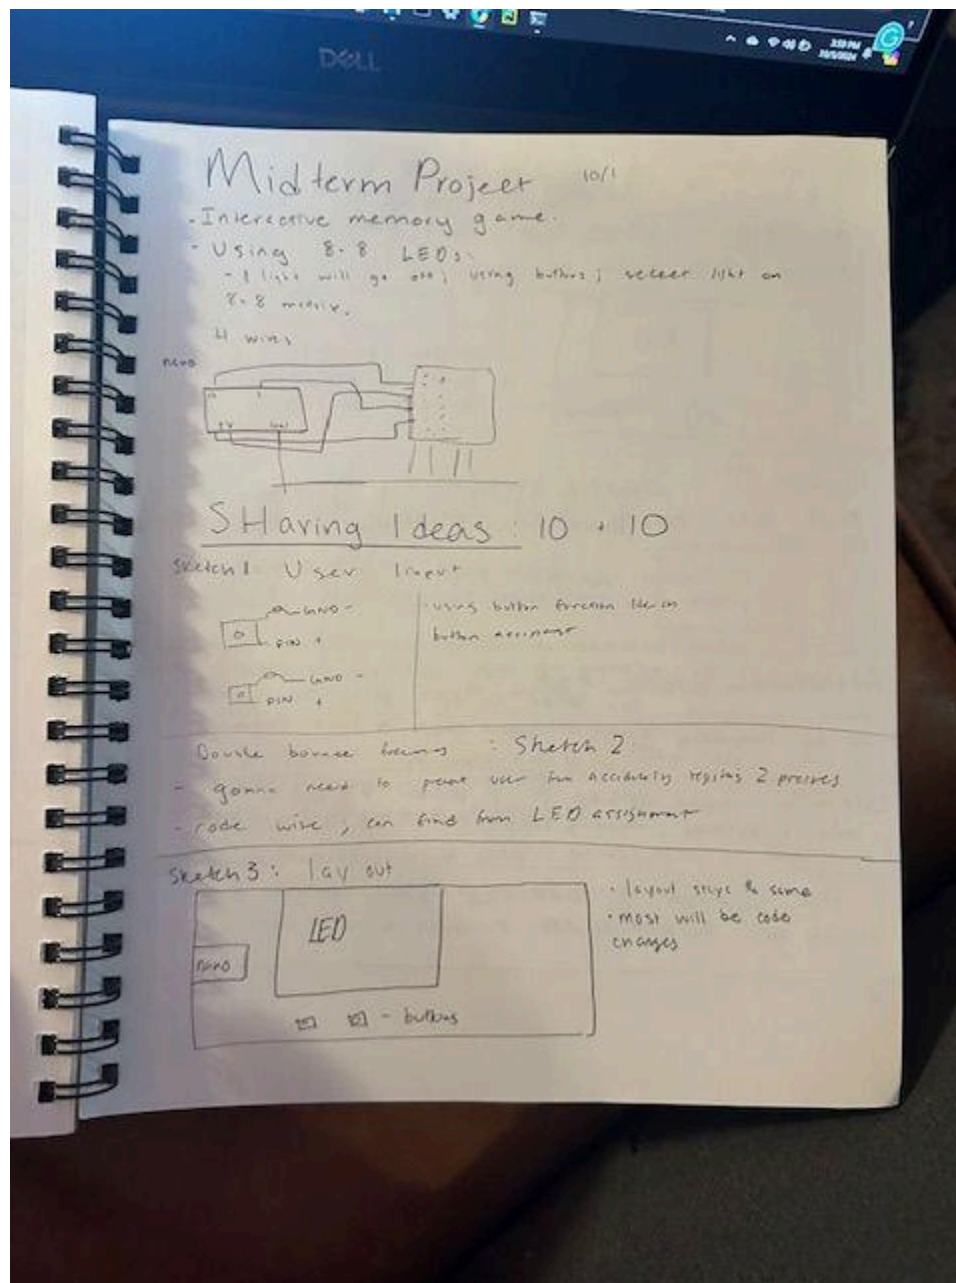 DELL
3:59 PM
10/5/2024
Midterm Project 10/1
- Interactive memory game.
- Using 8·8 LEDs:
- 1 light will go off; using buttons; select light on
8·8 matrix.
4 wires
nano
SHaring Ideas: 10 + 10
Sketch 1 User Input
GND -
PIN +
GND -
PIN +
· using button function like in
button assignment
Double bounce : Sketch 2
- gonna need to user from 2 presses
- code wise, can find from LED assignment
Sketch 3: lay out
LED
nano
- buttons
· layout stays same
· most will be code
changes